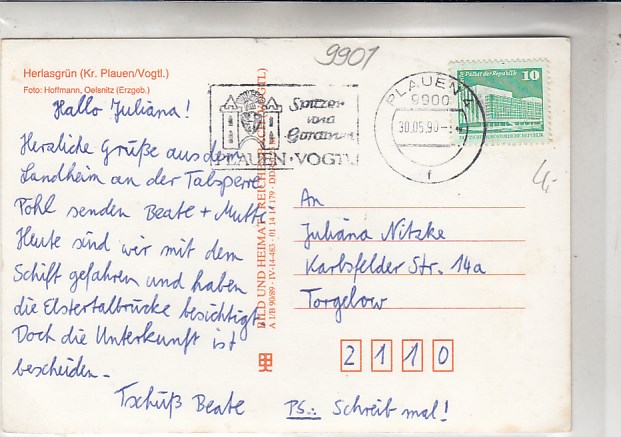 9901
Herlasgrün (Kr. Plauen/Vogtl.)
Foto: Hoffmann, Oelsnitz (Erzgeb.)
Hallo Juliana!
Herzliche Grüße aus dem
Landheim an der Talsperre
Pöhl senden Beate + Mutti.
Heute sind wir mit dem
Schiff gefahren und haben
die Elstertalbrücke besichtigt.
Doch die Unterkunft ist
bescheiden.-
Tschüß Beate
PS.: Schreib mal!
Spitzen
und
Gardinen
PLAUEN · VOGTL
PLAUEN 1
9900
30.05.90
f
Palast der Republik
10
BILD UND HEIMAT REICHENBACH (VOGTL)
A 1/B 90/89 · IV-14-483 · 01 14 14 179 · DDR
An
Juliana Nitzke
Karlsfelder Str. 14a
Torgelow
2 1 1 0